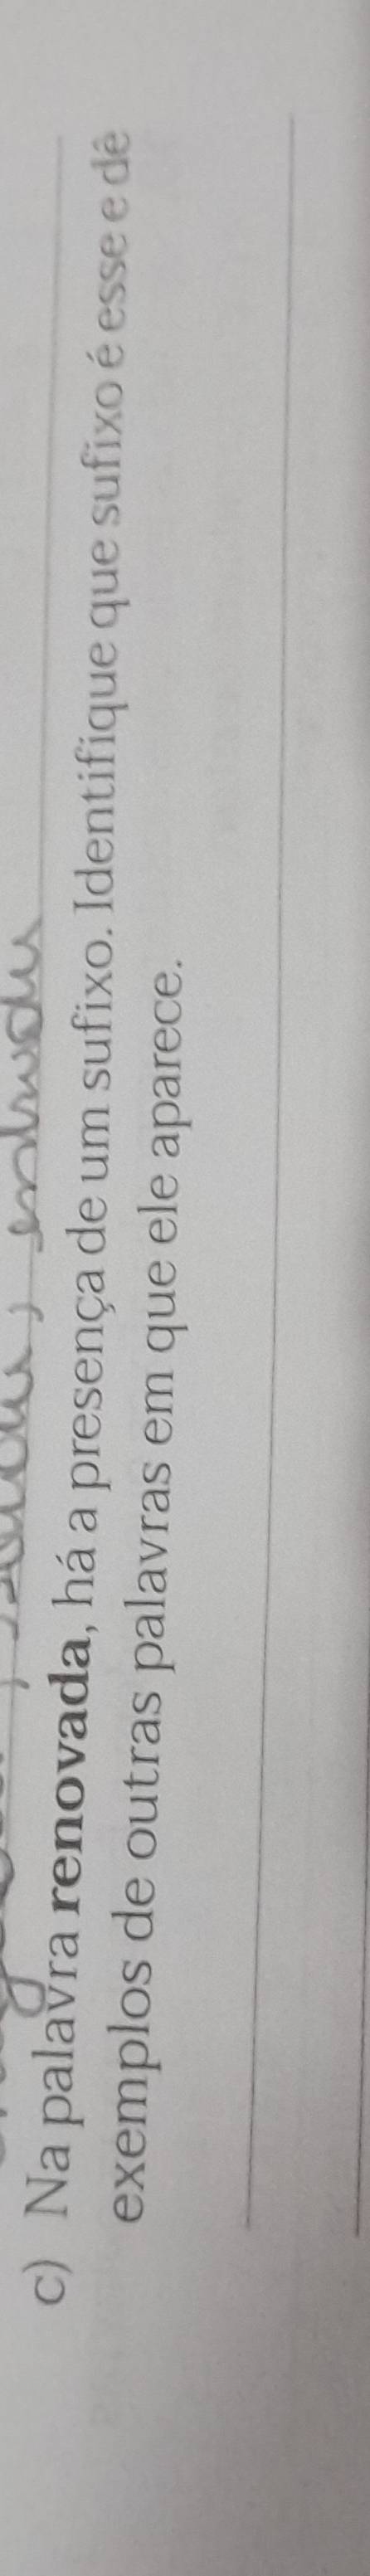 c) Na palavra renovada, há a presença de um sufixo. Identifique que sufixo é esse e dê
exemplos de outras palavras em que ele aparece.